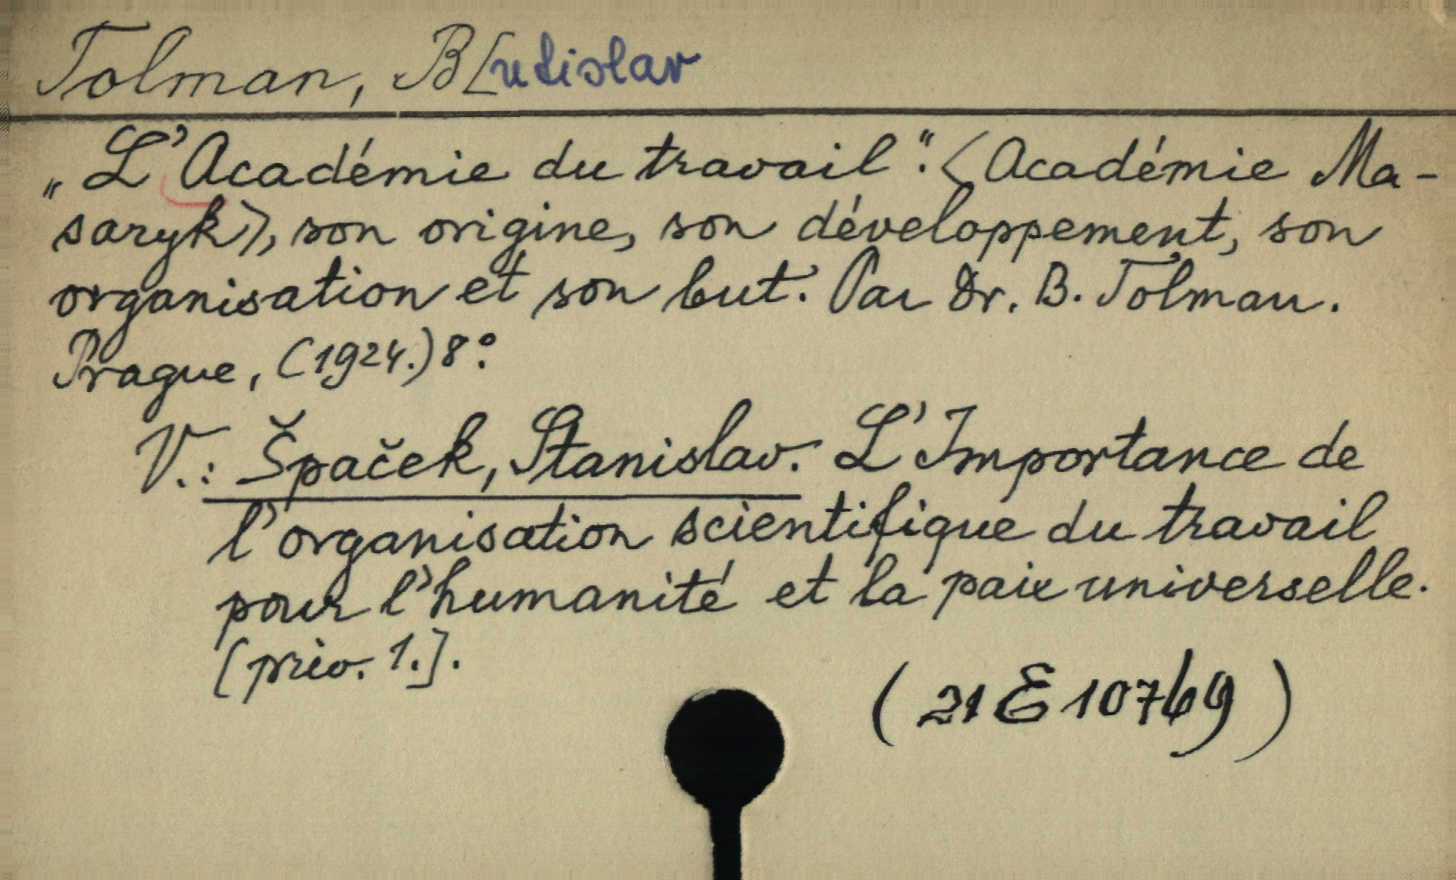 Tolman, B[řetislav
„L'Académie du travail". <Académie Ma-
saryk>, son origine, son développement, son
organisation et son but. Par Dr. B. Tolman.
Prague, (1924.) 8°.
V.: Špaček, Stanislav. L'Importance de
l'organisation scientifique du travail
pour l'humanité et la paix universelle.
[přív. 1.].
(21 E 10769)